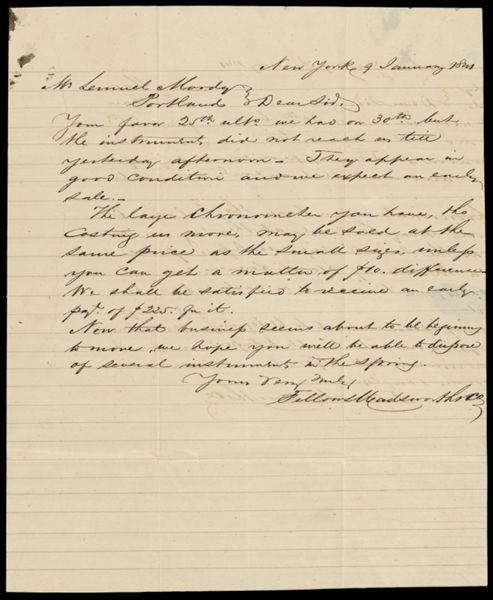 New York 9 January 1841
Mr Lemuel Moody
Portland Dear Sir,
Your favor 25th ulto we had on 30th but
the instruments did not reach us till
yesterday afternoon – They appear in
good condition and we expect an early
sale. –
The large Chronometer you have, tho
Costing us more, may be sold at the
same price as the small sizes, unless
you can get a matter of $10. difference
We shall be satisfied to receive an early
pay.t of $225. for it.
Now that business seems about to be beginning
to move, we hope you will be able to dispose
of several instruments in the spring.
Yours Very Truly
Fellows Wadsworth & Co